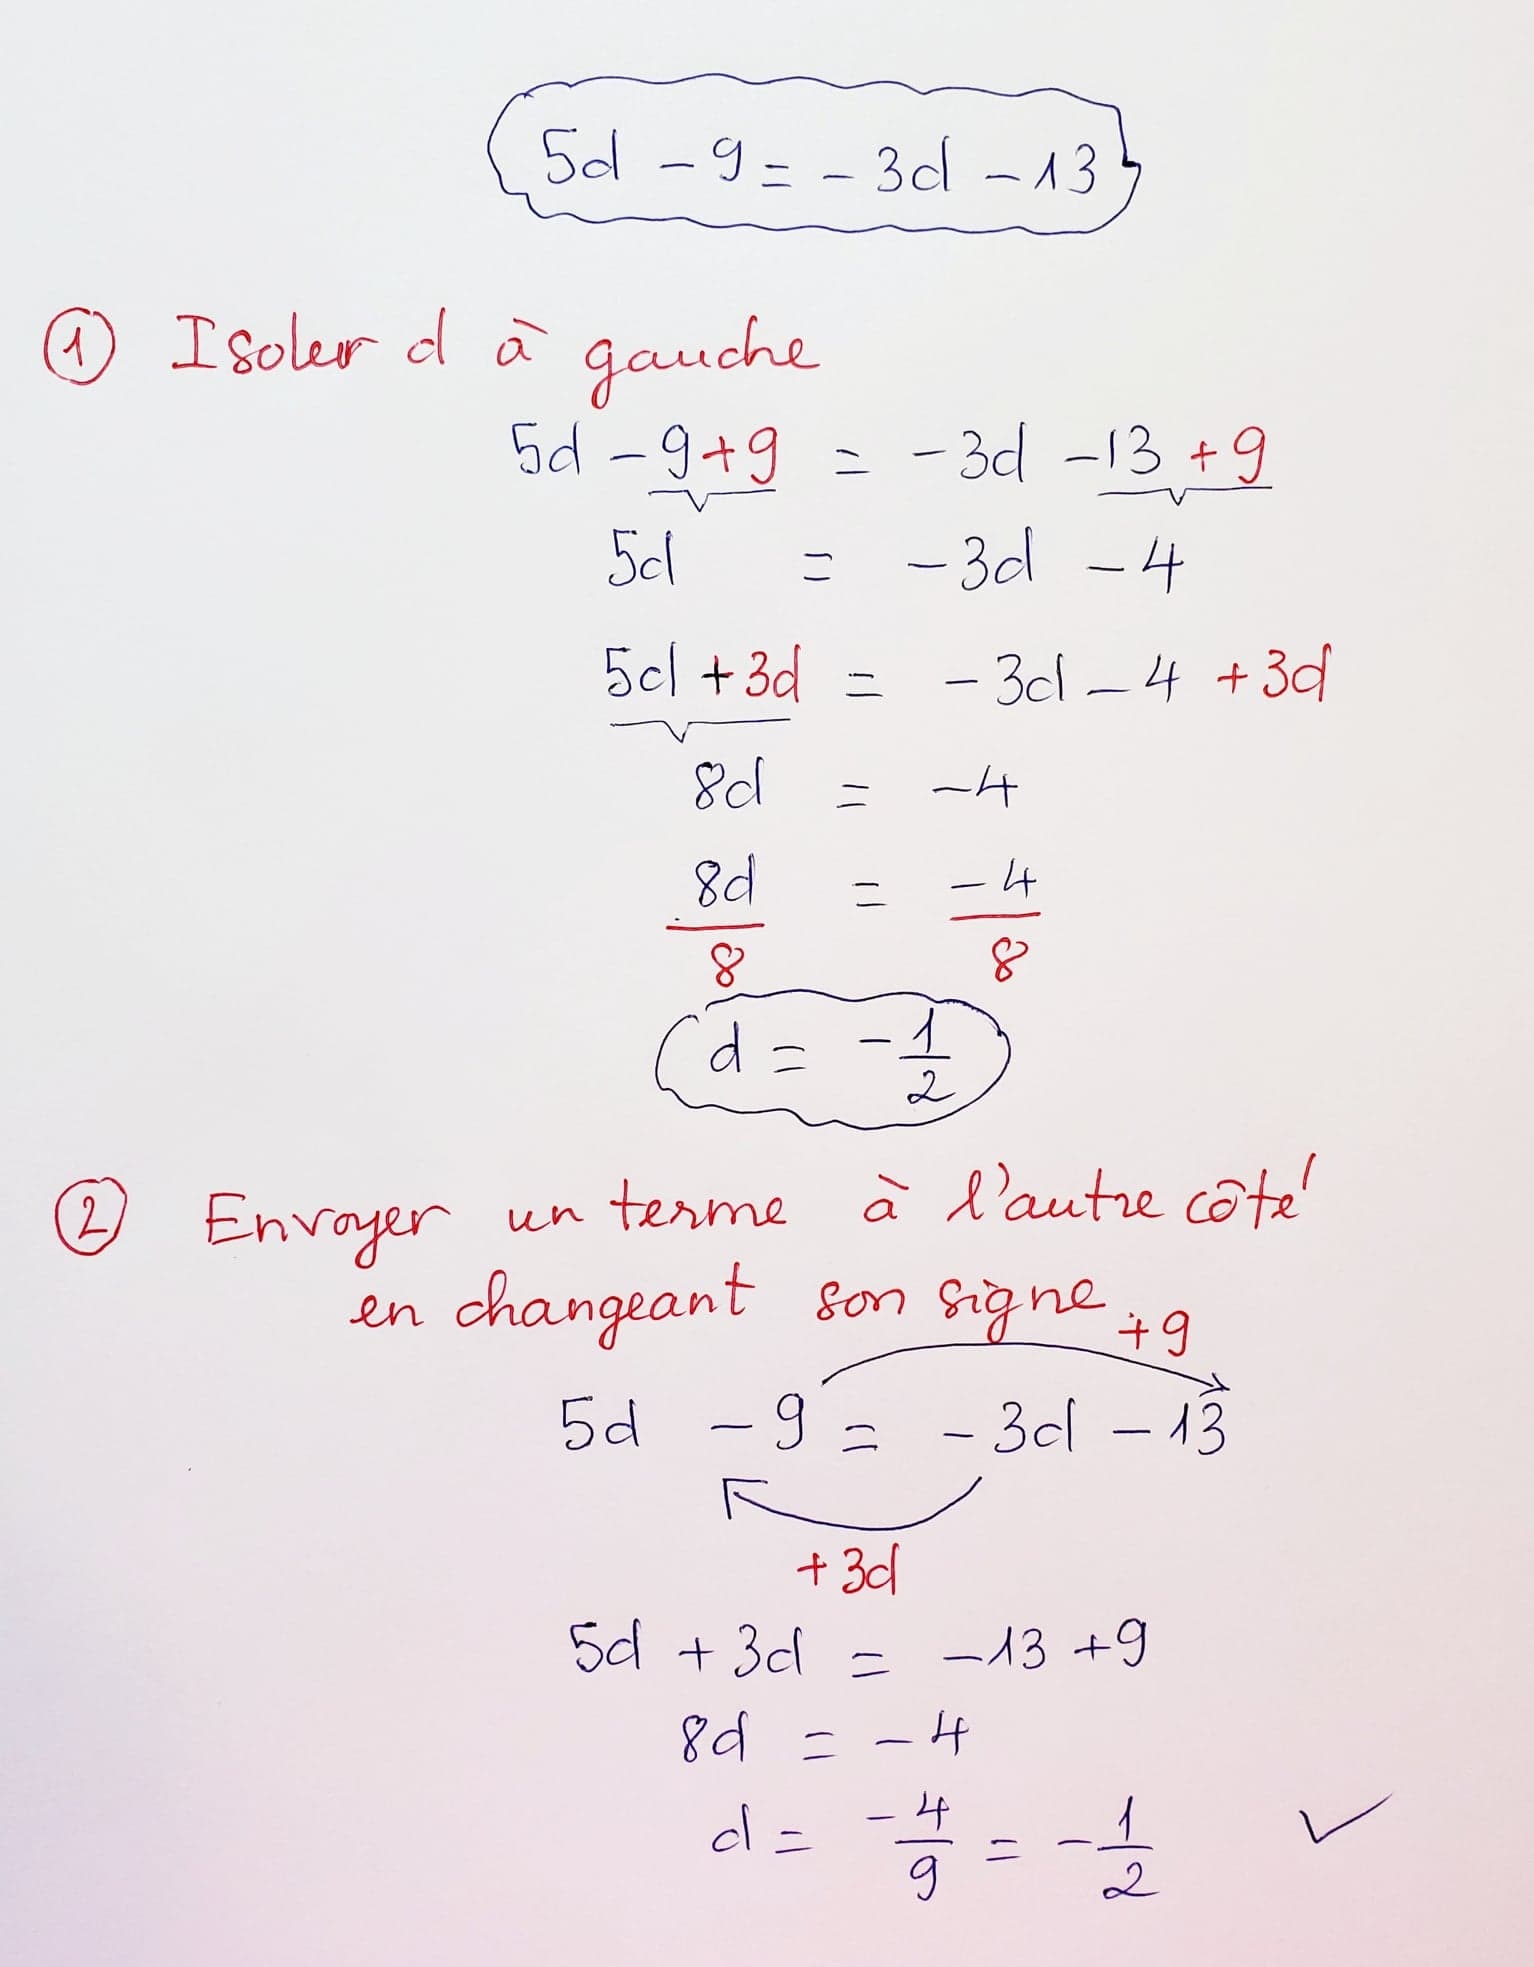 5d - 9 = - 3d - 13
① Isoler d à gauche
5d - 9 + 9 = - 3d - 13 + 9
5d = - 3d - 4
5d + 3d = - 3d - 4 + 3d
8d = - 4
8d/8 = - 4/8
d = - 1/2
② Envoyer un terme à l'autre côté
en changeant son signe
+ 9
5d - 9 = - 3d - 13
+ 3d
5d + 3d = - 13 + 9
8d = - 4
d = - 4/9 = - 1/2 ✓